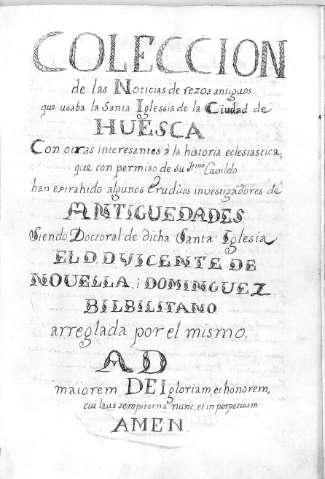 COLECCION
de las Noticias de rezos antiguos
que usaba la Santa Iglesia de la Ciudad de
HUESCA
Con otras interesantes à la historia eclesiastica,
que con permiso de su Yllmo Cavildo
han extrahido algunos Eruditos investigadores de
ANTIGUEDADES
Siendo Doctoral de dicha Santa Iglesia
EL D. D. VICENTE DE
NOVELLA, i DOMINGUEZ
BILBILITANO
arreglada por el mismo.
AD
maiorem DEI gloriam, et honorem,
cui laus sempiterna nunc, et in perpetuum
AMEN